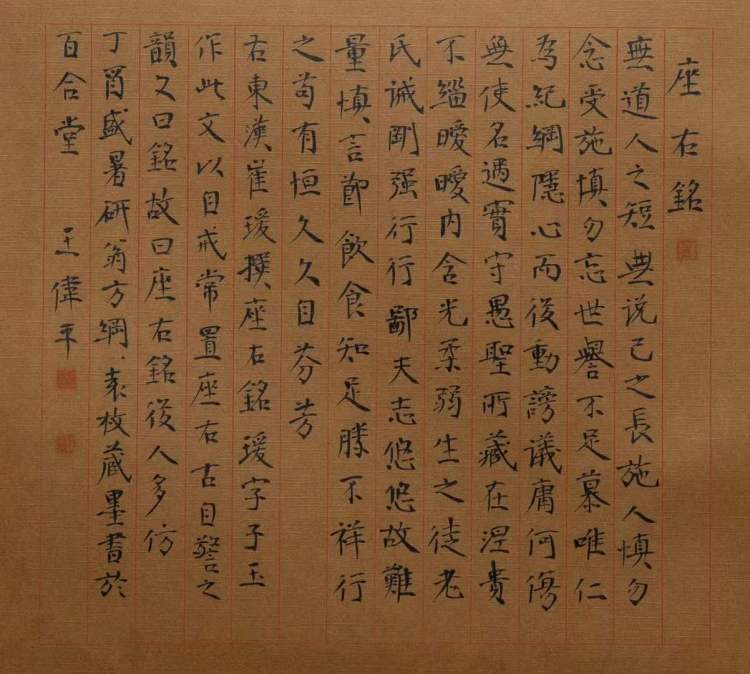 座右銘
無道人之短無説己之長施人慎勿
念受施慎勿忘世譽不足慕唯仁
為紀綱隱心而後動謗議庸何傷
無使名過實守愚聖所藏在涅貴
不緇曖曖内含光柔弱生之徒老
氏誡剛强行行鄙夫志悠悠故難
量慎言節飲食知足勝不祥行
之苟有恒久久自芬芳
右東漢崔瑗撰座右銘瑗字子玉
作此文以自戒常置座右古自警之
韻文曰銘故曰座右銘後人多仿
丁酉盛暑研翁方綱、袁枚藏墨書於
百合堂 王偉平